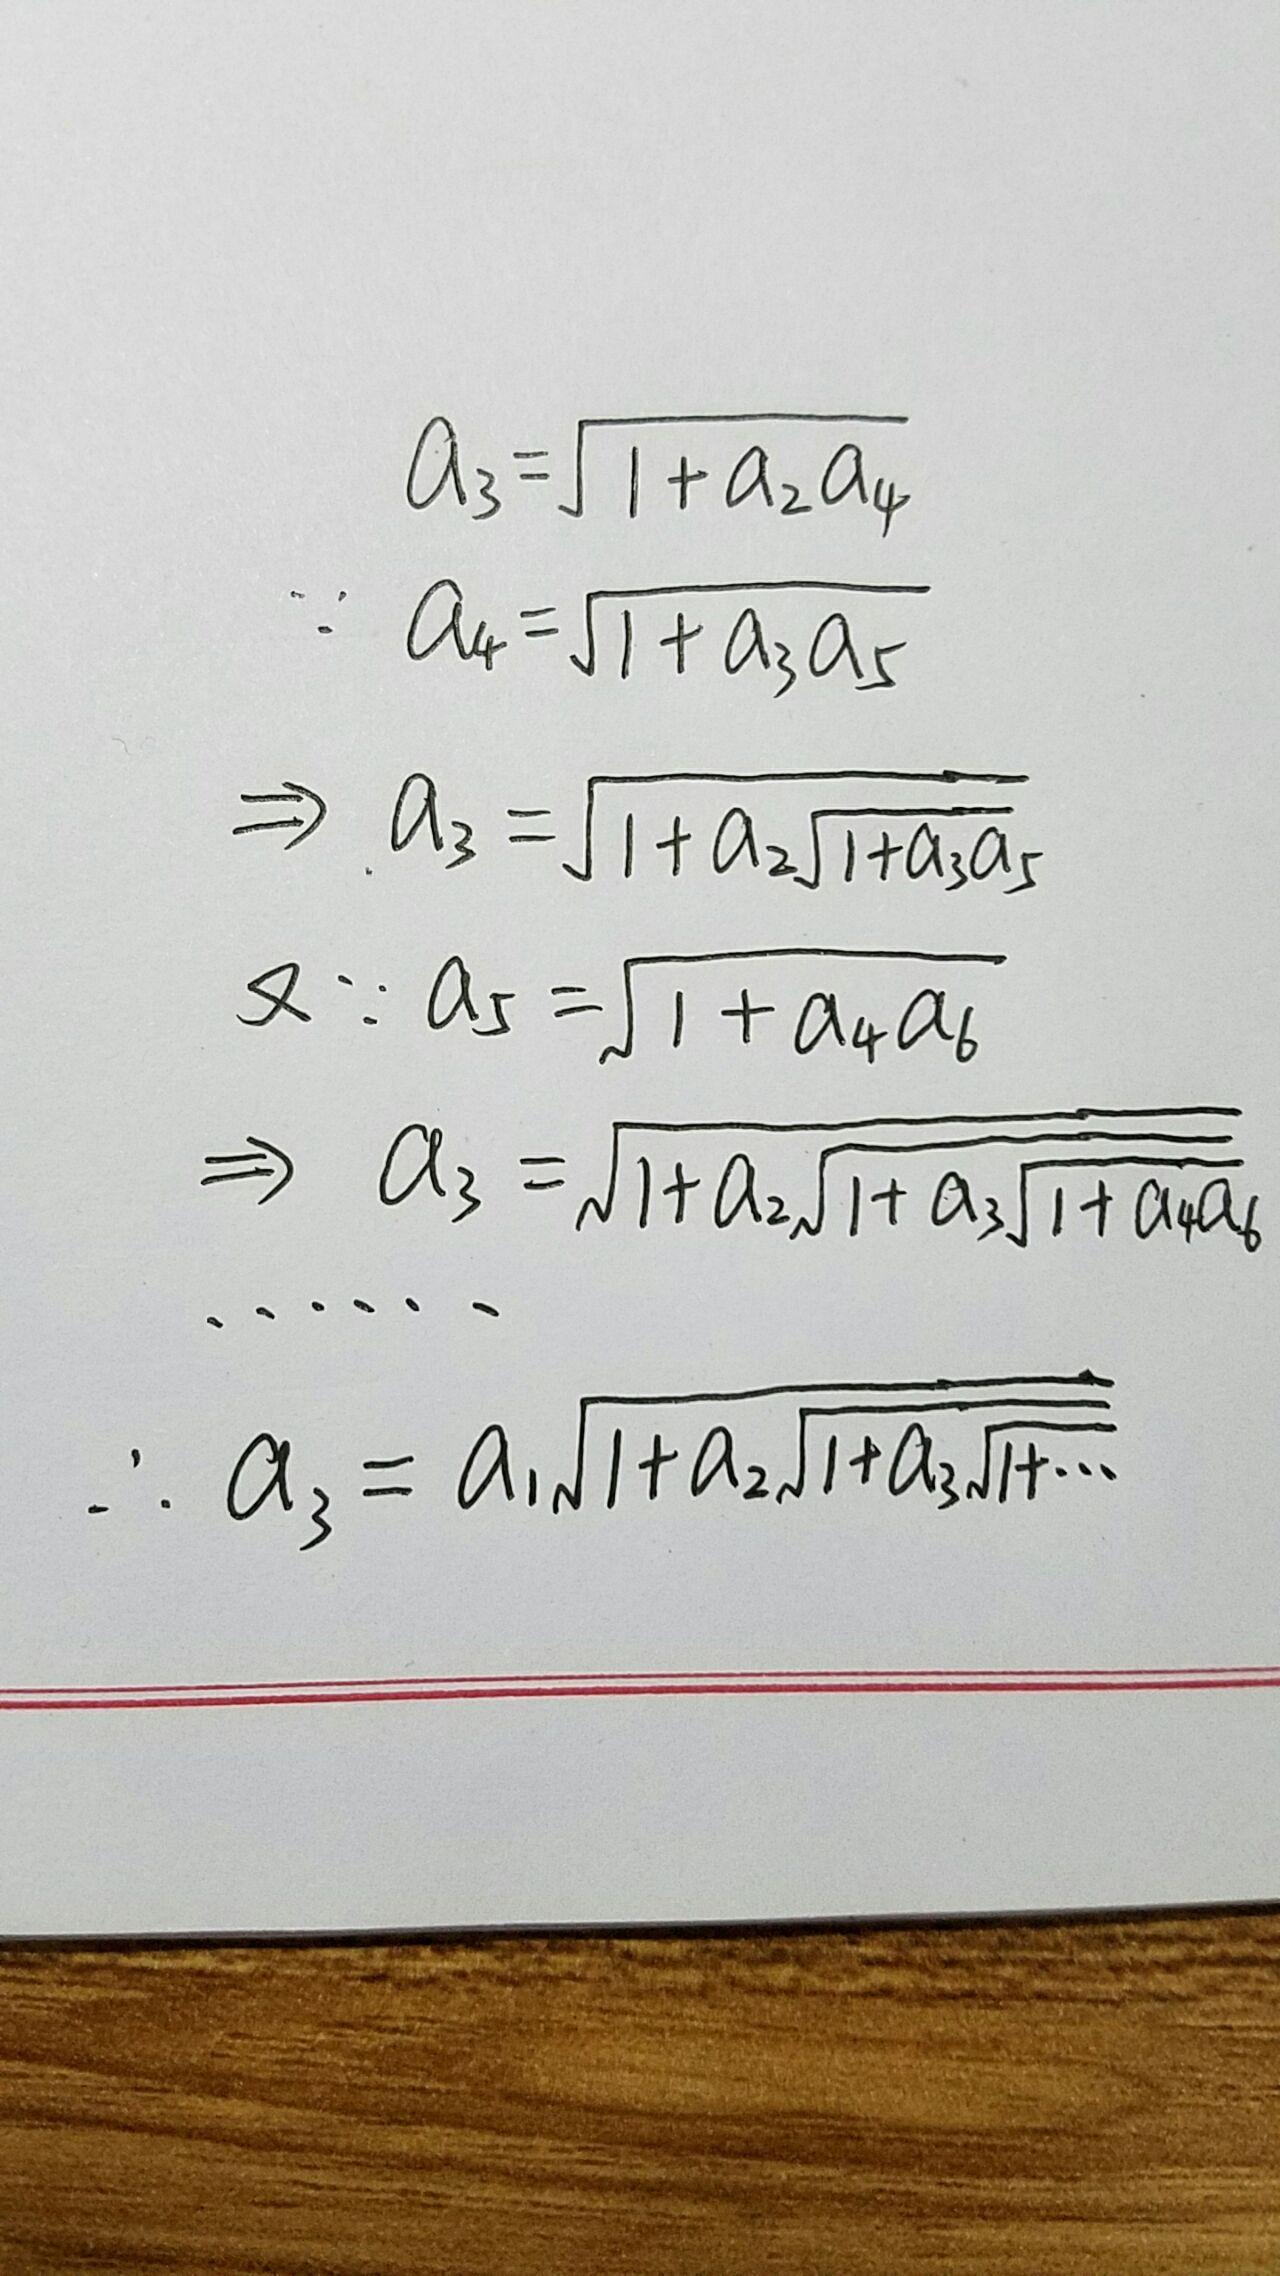 a₃=√(1+a₂a₄)
∵ a₄=√(1+a₃a₅)
⇒ a₃=√(1+a₂√(1+a₃a₅))
又∵ a₅=√(1+a₄a₆)
⇒ a₃=√(1+a₂√(1+a₃√(1+a₄a₆)))
······
∴ a₃=a₁√(1+a₂√(1+a₃√(1+···)))